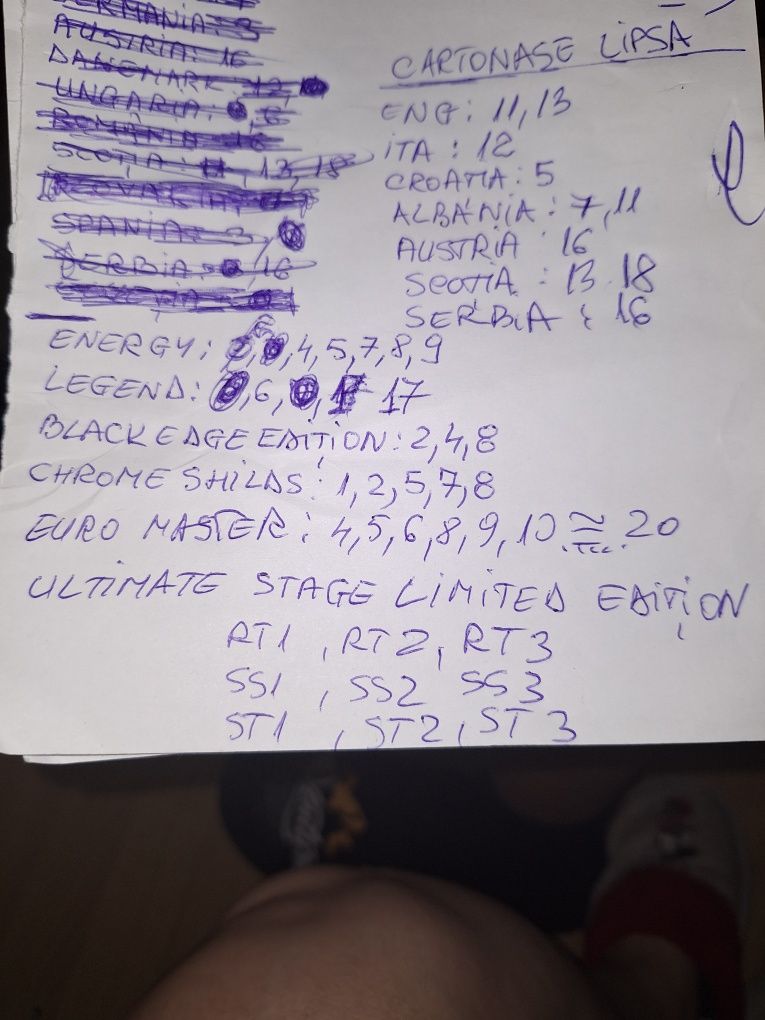 AUSTRIA: 16
DANEMARK: 12,
UNGARIA: , 6
ROMÂNIA: 16
SCOȚIA: 11, 13, 18
SPANIA: 3,
SERBIA: 16
CARTONASE LIPSA
ENG: 11, 13
ITA : 12
CROATIA: 5
ALBANIA : 7, 11
AUSTRIA : 16
SCOȚIA : 13 18
SERBIA : 16
ENERGY: 4, 5, 7, 8, 9
LEGEND: 6, 17
BLACK EDGE EDIȚION: 2, 4, 8
CHROME SHILDS: 1, 2, 5, 7, 8
EURO MASTER: 4, 5, 6, 8, 9, 10 20
ULTIMATE STAGE LIMITED EDIȚION
RT1 , RT2, RT3
SS1 , SS2 SS3
ST1 , ST2, ST3